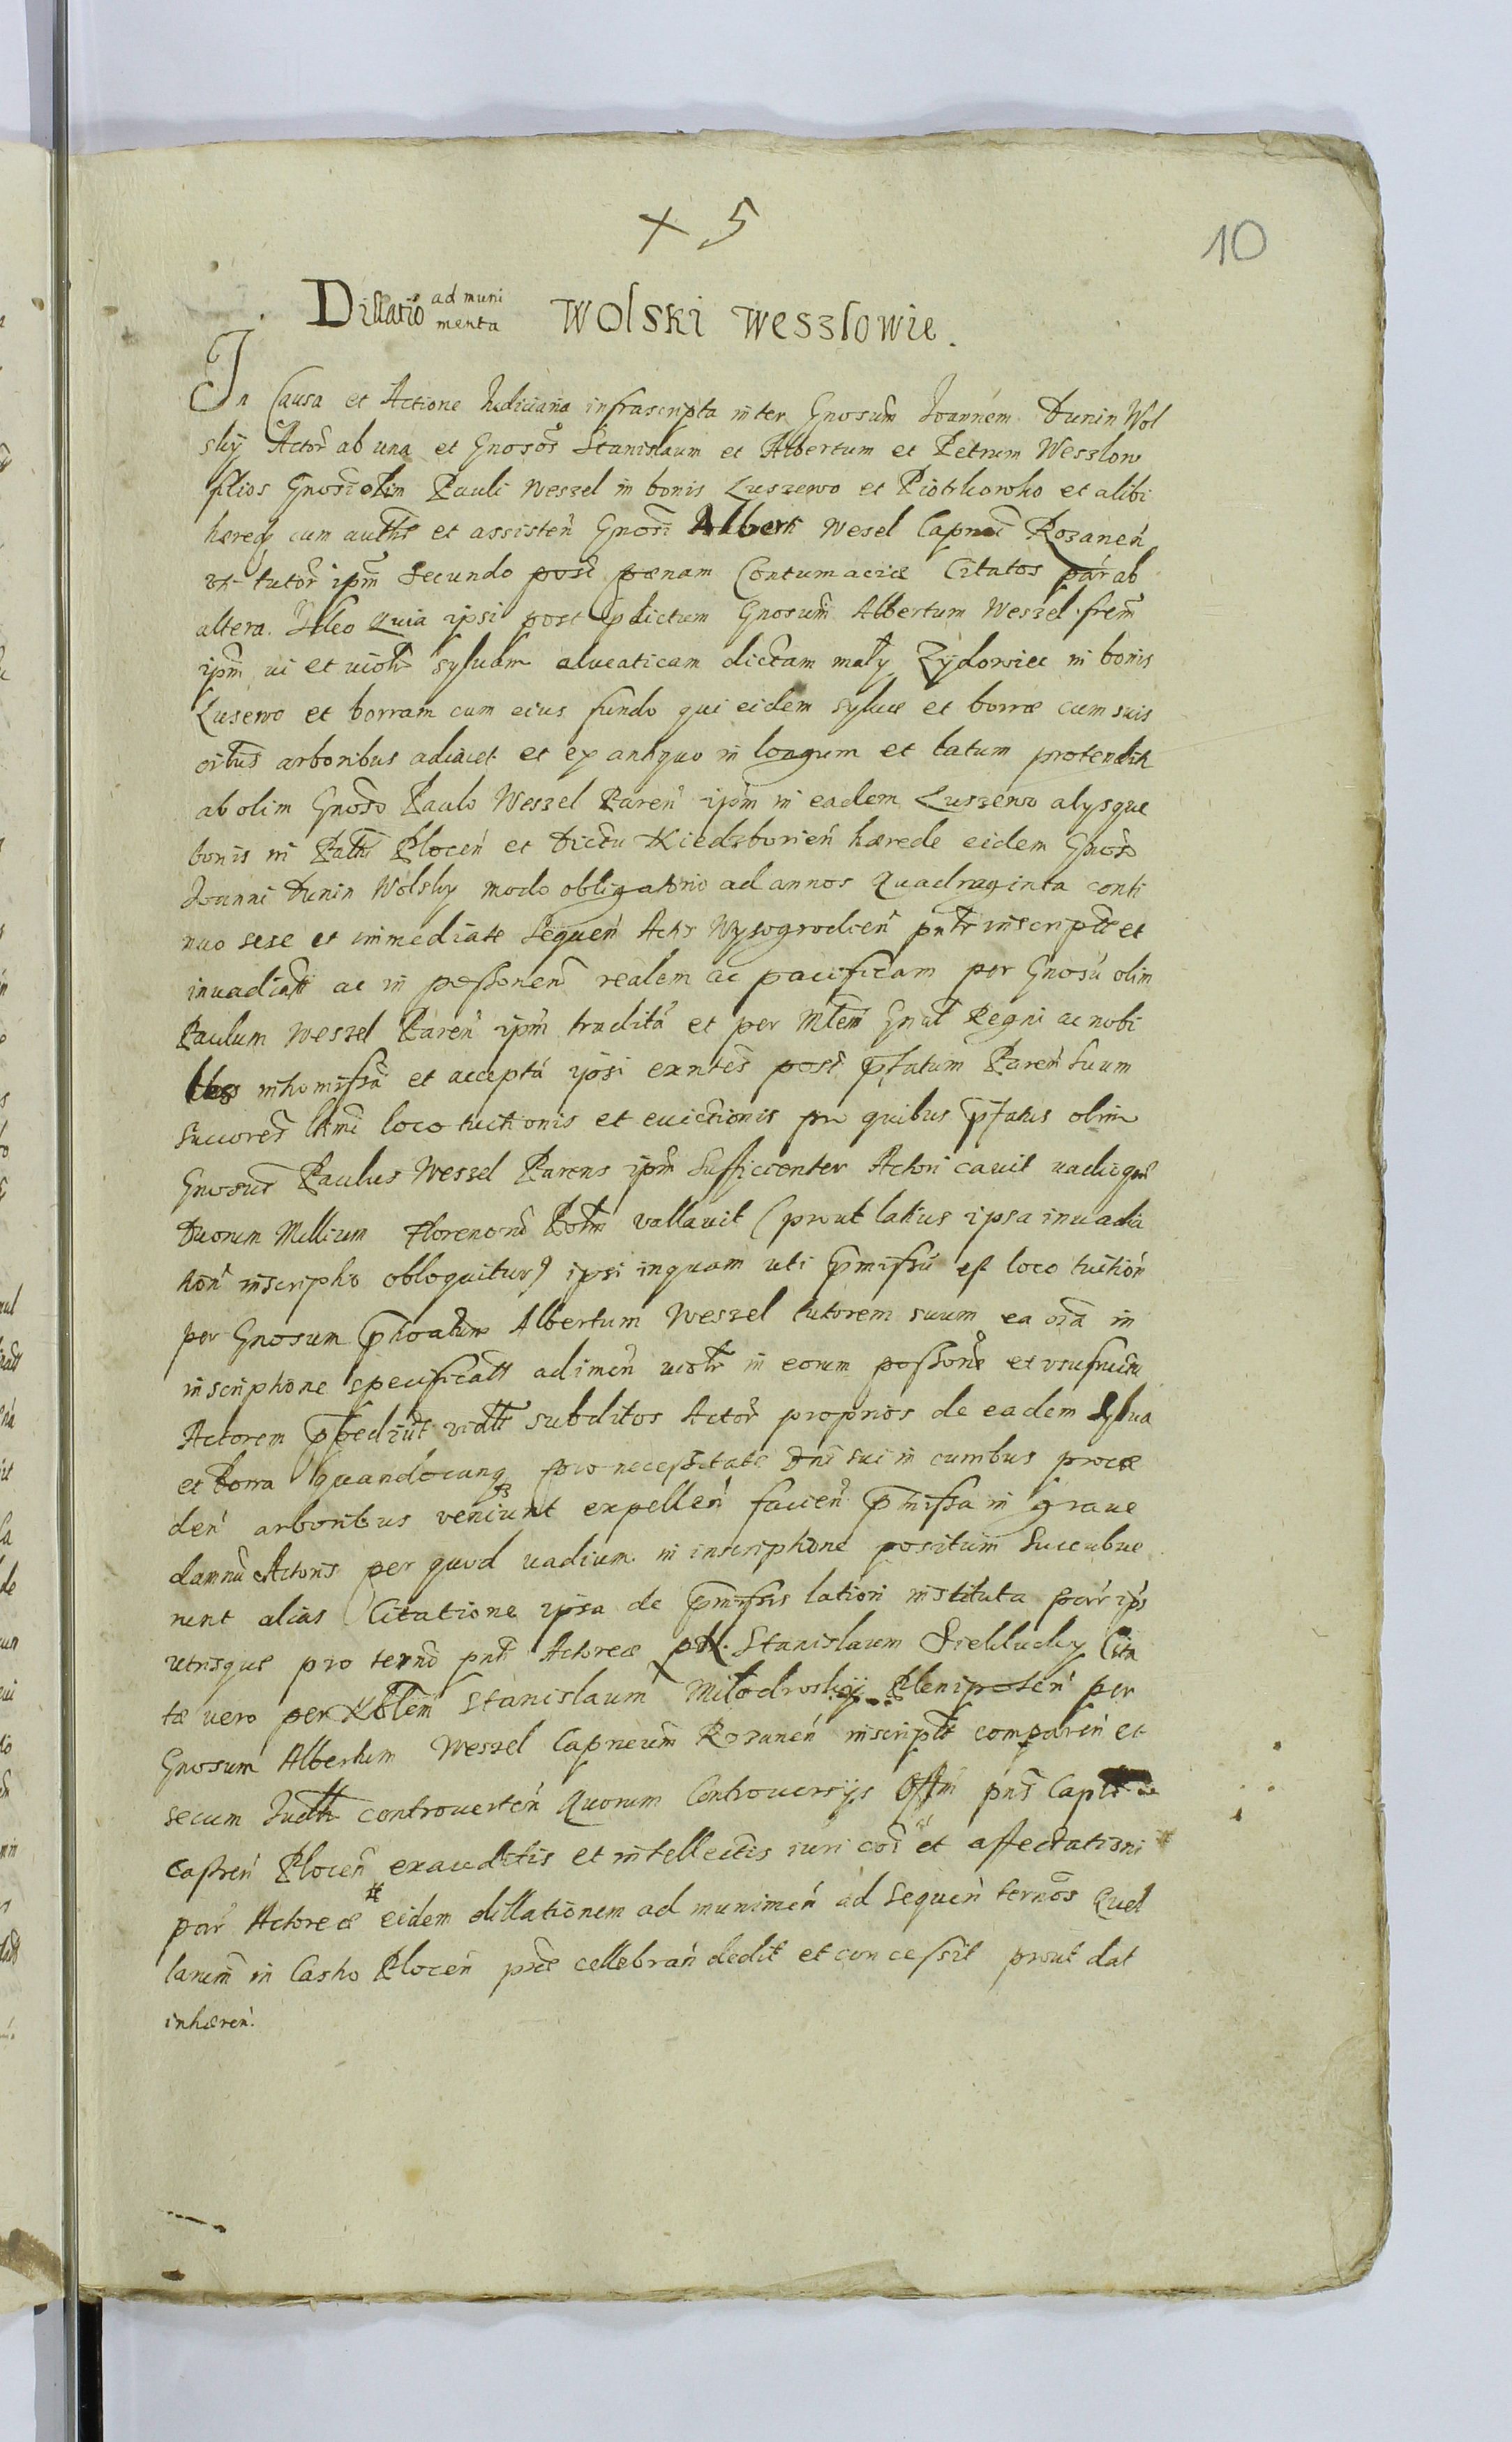 + 5
10
Dillatio ad muni
menta Wolski Weszlowie.
In Causa et Actione Iudiciaria infrascripta inter Gnosum Joannem Dunin Wol
sky Actor ab una et Gnosos Stanislaum et Albertum et Petrum Weszlow
filios Gnosi olim Pauli Weszel in bonis Luszewo et Piotrkowko et alibi
hæredes cum authe et assisten Gnosi Alberti Wesel Capnei Rozanen
uti tutor ipm Secundo post pœnam Contumaciæ Citatos par ab
altera. Ideo quia ipsi post pdictum Gnosum Albertum Weszel frem
ipm vi et violr syluam alueaticam dictam mały Zydowiec in bonis
Lusewo et borram cum eius fundo qui eidem syluæ et borræ cum suis
oibus arboribus adiacet et ex antiquo in longum et latum protendit
ab olim Gnoso Paulo Weszel Paren ipm in eadem Luszewo alysque
bonis in Pallu Plocen et Dictu Niedzborien hærede eidem Gnoso
Joanni Dunin Wolsky modo obligatorio ad annos Quadraginta conti
nuo sese et immediate Sequen Actis Wysogrodien pntr inscripta et
inuadiatt ac in possonem realem ac pacificam per Gnosu olim
Paulum Weszel Paren ipm tradita et per Mlem Gnal Regni ac nobi
les intromissa et accepta ipsi exntes post pfatum Paren suum
Succores ltmi loco tuitionis et euictionis pro quibus pfatus olim
Gnosus Paulus Weszel Parens ipm Sufficienter Actori cauit uadioque
Duorum Millium Florenoru Polm vallauit (prout latius ipsa inuadia
tion inscriptio obloquitur) ipsi inquam uti pmissu est loco tuition
per Gnosum Albertum Weszel tutorem suum ea oia in
inscriptione specificatt adimen violr in eorum possone et usufructu
Actorem ppediut vidtt subditos Actor proprios de eadem Sylua
et borra quandocunq pro necessitate Dni sui in cumbus procæ
den arboribus veniunt expellen facien pmissa in graue
damnu Actoris per quod uadium in inscriptione positum Succubue
runt alias Citatione ipsa de pmissis latiori instituta par ips
utrisque pro termo pnti Actoreæ per Stanislaum Sielucky Cita
tæ vero per Nblem Stanislaum Milodrosky Plenipoten per
Gnosum Albertum Weszel Capneum Rozanen inscript comparen et
secum Iudtr controuerten Quorum Controuersijs Offm pns Capte
castren Plocen exauditis et intellectis iuri coi et affectationi
par Actoreæ eidem dillationem ad munimen ad Sequen ternos Quel
larum in Castro Plocen pne cellebran dedit et concessit prout dat
inhæren.